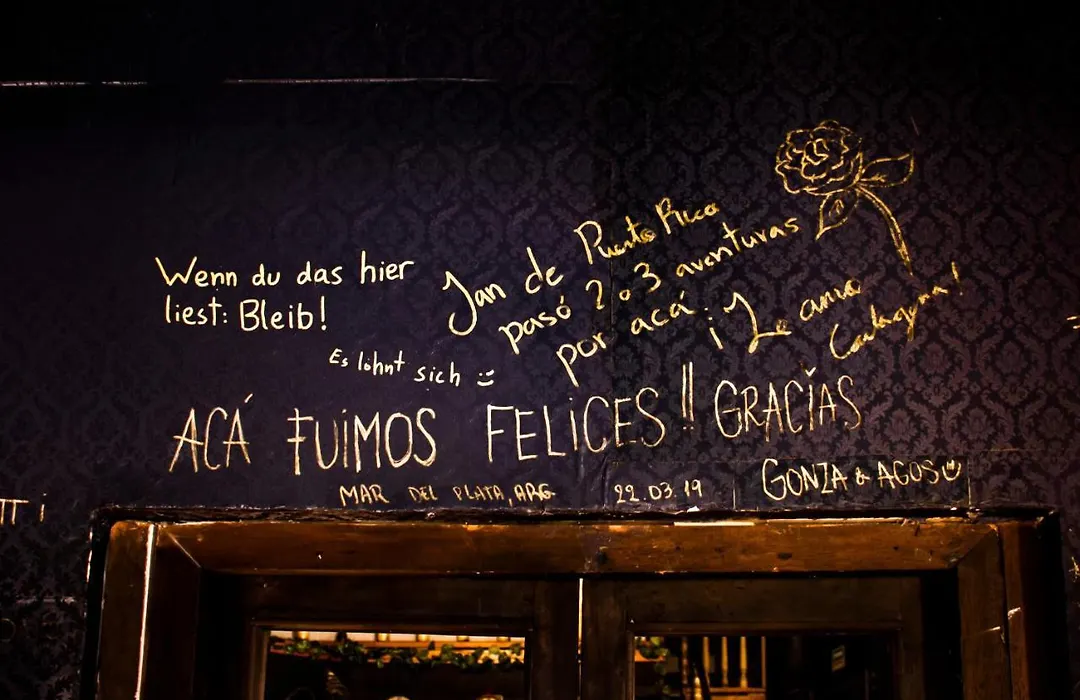 Wenn du das hier
liest: Bleib!
Es lohnt sich :)
Jan de Puerto Rico
pasó 2 o 3 aventuras
por acá. ¡Le amo
Cartagena!
ACÁ FUIMOS FELICES!! GRACIAS
MAR DEL PLATA, ARG. 22.03.19
GONZA & AGOS